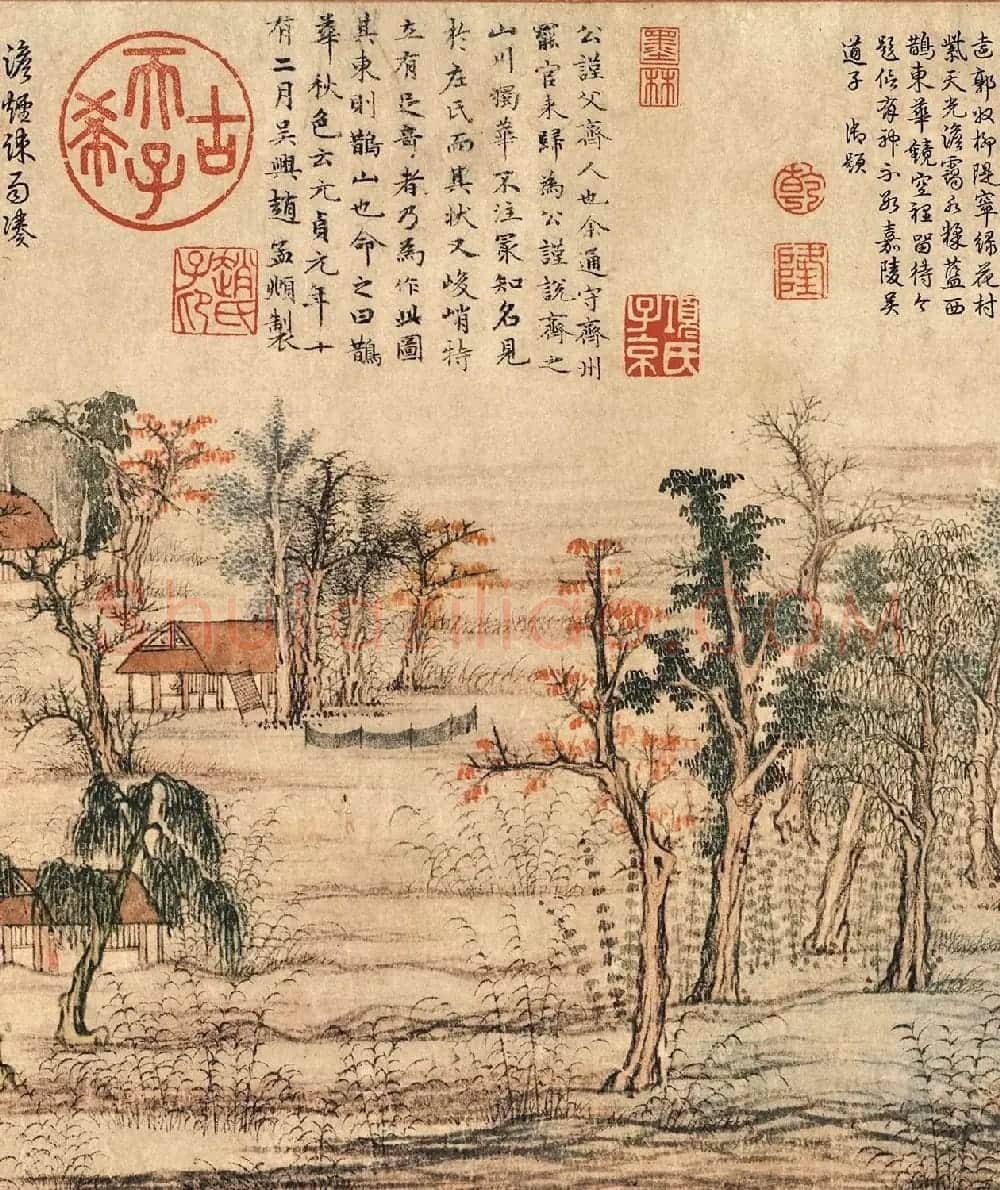 郭 柳隄 綿花村
天光澹靄水揉藍西
鵲東華鏡空裡留待今
題似有神不數嘉陵吳
道子 御題
乾
隆
墨林
公謹父齊人也余通守齊州
罷官來歸為公謹說齊之
山川獨華不注冣知名見
於左氏而其狀又峻峭特
立有足奇者乃為作此圖
其東則鵲山也命之曰鵲
華秋色云元貞元年十
有二月吳興趙孟頫製
項氏子京
古希天子
趙氏子印
澹煙疎雨
Shufaziliao.COM